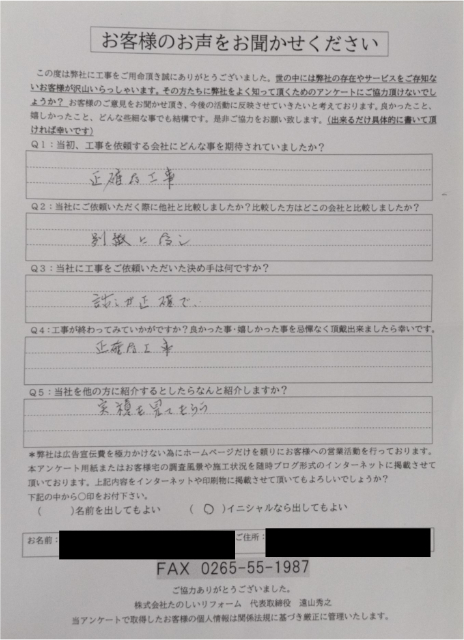 お客様のお声をお聞かせください
この度は弊社に工事をご用命頂き誠にありがとうございました。世の中には弊社の存在やサービスをご存知な
いお客様が沢山いらっしゃいます。その方たちに弊社をよく知って頂くためのアンケートにご協力頂けないで
しょうか？お客様のご意見をお聞かせ頂き、今後の活動に反映させていきたいと考えております。良かったこと、
嬉しかったこと、どんな些細な事でも結構です。是非ご協力をお願い致します。（出来るだけ具体的に書いて頂
ければ幸いです）
Q1：当初、工事を依頼する会社にどんな事を期待されていましたか？
正確な工事
Q2：当社にご依頼いただく際に他社と比較しましたか？比較した方はどこの会社と比較しましたか？
別段に無し
Q3：当社に工事をご依頼いただいた決め手は何ですか？
話しが正確で、
Q4：工事が終わってみていかがですか？良かった事・嬉しかった事を忌憚なく頂戴出来ましたら幸いです。
正確な工事
Q5：当社を他の方に紹介するとしたらなんと紹介しますか？
実積を見てもらう
＊弊社は広告宣伝費を極力かけない為にホームページだけを頼りにお客様への営業活動を行っております。
本アンケート用紙またはお客様宅の調査風景や施工状況を随時ブログ形式のインターネットに掲載させて
頂いております。上記内容をインターネットや印刷物に掲載させて頂いてもよろしいでしょうか？
下記の中から〇印をお付下さい。
（　　）名前を出してもよい　（ 〇 ）イニシャルなら出してもよい
お名前： ご住所：
FAX 0265-55-1987
ご協力ありがとうございました。
株式会社たのしいリフォーム　代表取締役　遠山秀之
当アンケートで取得したお客様の個人情報は関係法規に基づき厳正に管理いたします。